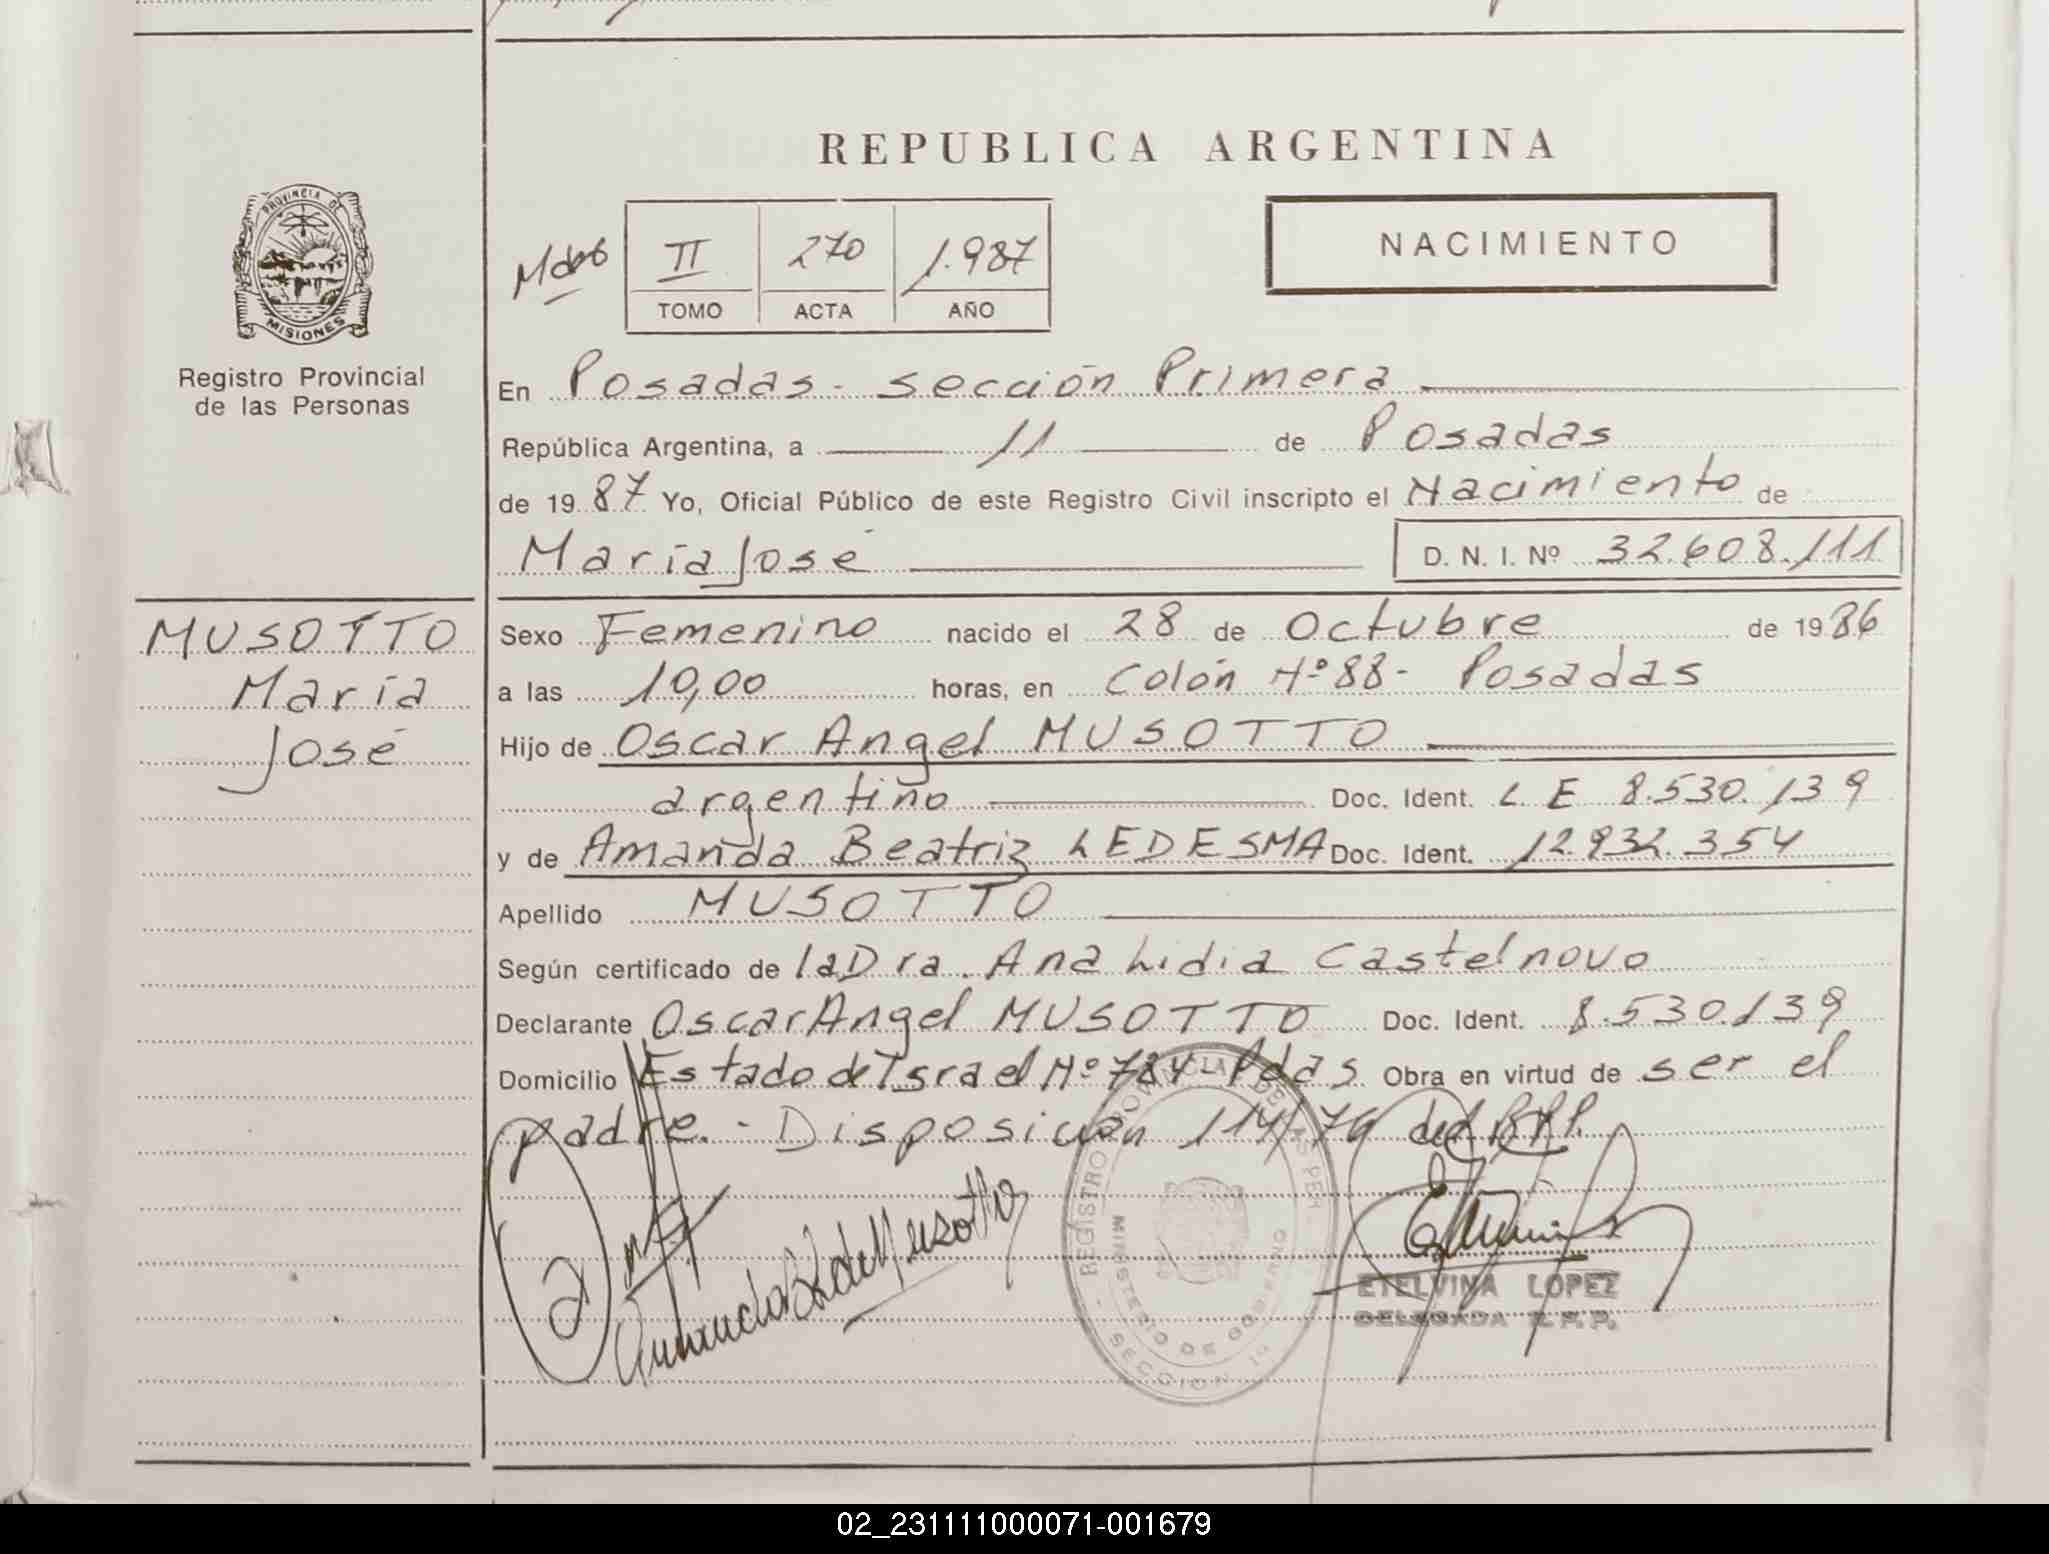 REPUBLICA ARGENTINA
PROVINCIA DE
MISIONES
Registro Provincial
de las Personas
II 270 1.987
TOMO ACTA AÑO
NACIMIENTO
En Posadas - sección Primera
República Argentina, a 11 de Posadas
de 1987 Yo, Oficial Público de este Registro Civil inscripto el Nacimiento de
María José D. N. I. Nº 32.608.111
MUSOTTO
María
José
Sexo Femenino nacido el 28 de Octubre de 1986
a las 10,00 horas, en Colón Nº 88- Posadas
Hijo de Oscar Angel MUSOTTO
argentino Doc. Ident. L E 8.530.139
y de Amanda Beatriz LEDESMA Doc. Ident. 12.932.354
Apellido MUSOTTO
Según certificado de la Dra. Ana Lidia Castelnovo
Declarante Oscar Angel MUSOTTO Doc. Ident. 8.530.139
Domicilio Estado de Israel Nº 784 Pdas Obra en virtud de ser el
padre.- Disposición 114/76 del R.P.P.
Amanda B L de Musotto
REGISTRO PROVINCIAL DE LAS PER
MINISTERIO DE GOBIERNO
SECCION 1a
ETELVINA LOPEZ
DELEGADA R.P.P.
02_231111000071-001679